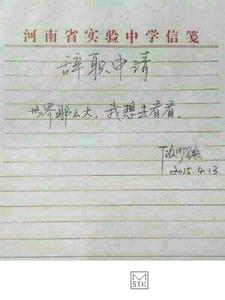 河南省实验中学信笺
辞职申请
世界那么大，我想去看看。
2015.4.13
M
STK